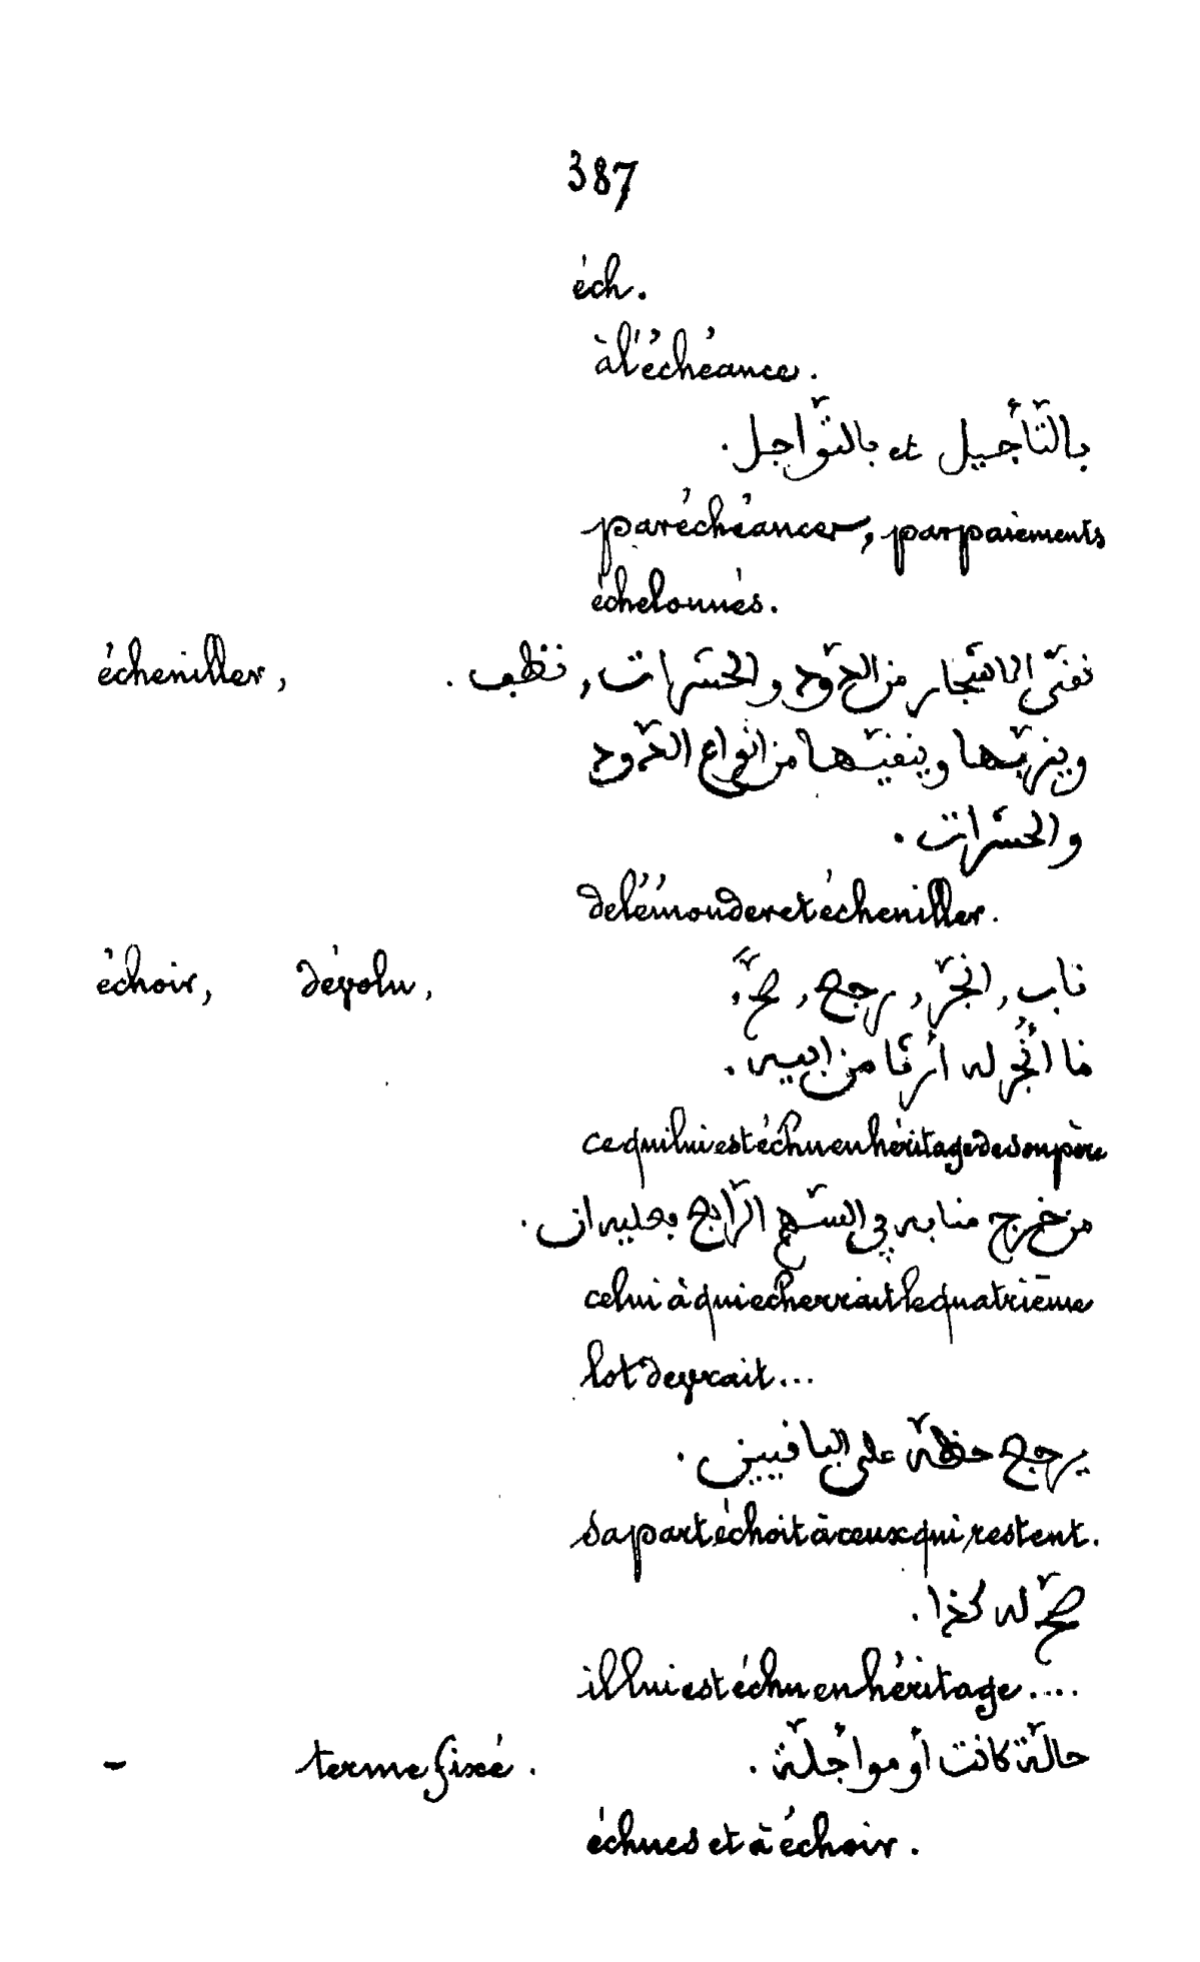 387
éch.
à l'échéance.
بالتّأجيل et بالتّواجل.
par échéances, par paiements
échelonnés.
écheniller, نقّى الاشجار من الدّود والحشرات, نظّف.
ويزبّرها وينقّيها من انواع الدّود
والحشرات.
de l'émonder et écheniller.
échoir, dévolu, ناب, انجرّ, رجع, صحّ.
ما انجرّ له أرثا من ابيه.
ce qui lui est échu en héritage de son père
من خرج منابه في السّهم الرّابع فعليه ان.
celui à qui écherrait le quatrième
lot devrait...
يرجع حظّه على الباقيين.
sa part échoit à ceux qui restent.
صحّ له كذا.
il lui est échu en héritage....
- terme fixé. حالّة كانت أو مواجلة.
échues et à échoir.